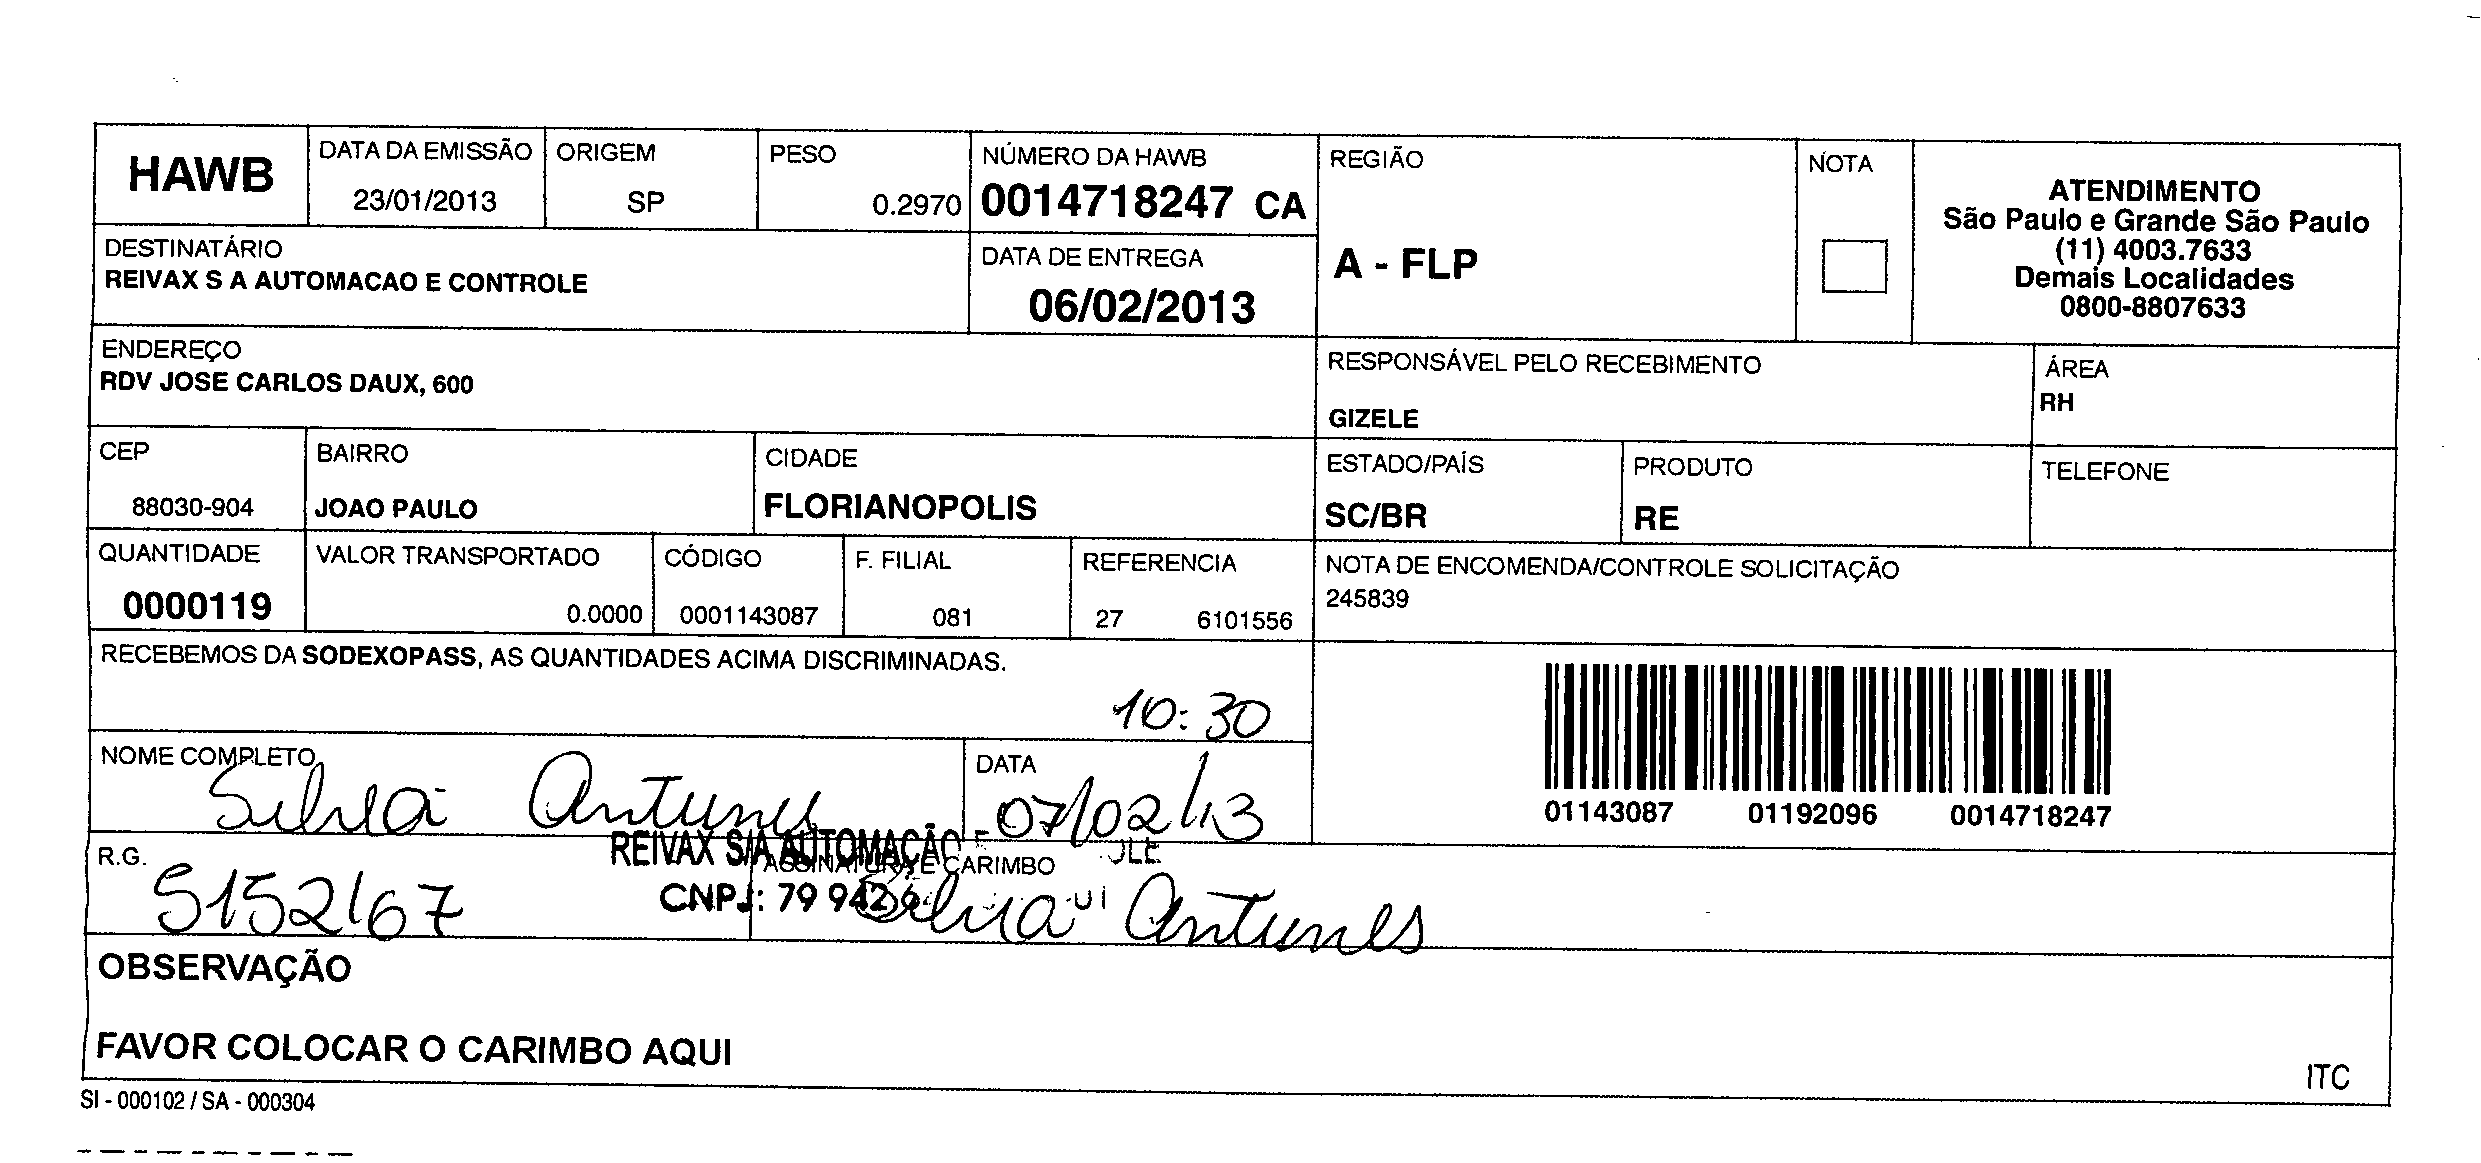 HAWB
DATA DA EMISSÃO
23/01/2013
ORIGEM
SP
PESO
0.2970
NÚMERO DA HAWB
0014718247 CA
REGIÃO
A - FLP
NOTA
ATENDIMENTO
São Paulo e Grande São Paulo
(11) 4003.7633
Demais Localidades
0800-8807633
DESTINATÁRIO
REIVAX S A AUTOMACAO E CONTROLE
DATA DE ENTREGA
06/02/2013
ENDEREÇO
RDV JOSE CARLOS DAUX, 600
RESPONSÁVEL PELO RECEBIMENTO
GIZELE
ÁREA
RH
CEP
88030-904
BAIRRO
JOAO PAULO
CIDADE
FLORIANOPOLIS
ESTADO/PAÍS
SC/BR
PRODUTO
RE
TELEFONE
QUANTIDADE
0000119
VALOR TRANSPORTADO
0.0000
CÓDIGO
0001143087
F. FILIAL
081
REFERENCIA
27 6101556
NOTA DE ENCOMENDA/CONTROLE SOLICITAÇÃO
245839
RECEBEMOS DA SODEXOPASS, AS QUANTIDADES ACIMA DISCRIMINADAS.
10:30
NOME COMPLETO
Silvia Antunes
DATA
07/02/13
01143087 01192096 0014718247
R.G.
5152167
REIVAX S/A AUTOMAÇÃO E
CNPJ: 79 942
ASSINATURA E CARIMBO
Silvia Antunes
OBSERVAÇÃO
FAVOR COLOCAR O CARIMBO AQUI
ITC
SI - 000102 / SA - 000304